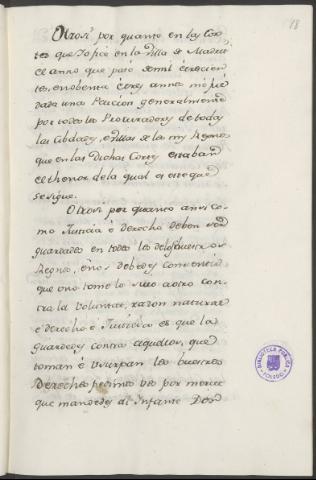 18
Otrosi por quanto en las Cor-
tes que Yo fice en la Villa de Madrid
el anno que pasó de mil è trecien-
tos, è nobenta è tres annos me fue
dada una Peticion generalmente
por todos los Procuradores de todas
las Cibdades, è Villas de los mis Regnos
que en las Dichas Cortes estaban
el thenor de la qual es este que
se sigue.
Otrosi por quanto ansi co-
mo Justicia è derecho deben ser
guardados en todos los de los vuestros
Regnos, è nos debedes consentir
que uno tome lo suio a otro con-
tra la voluntad, razon natural
è derecho è Justicia es que la
guardedes contra aquellos, que
toman è usurpan los vuestros
Derechos pedimos vos por merced
que mandedes al Infante Don
BIBLIOTECA PUBLICA
TOLEDO